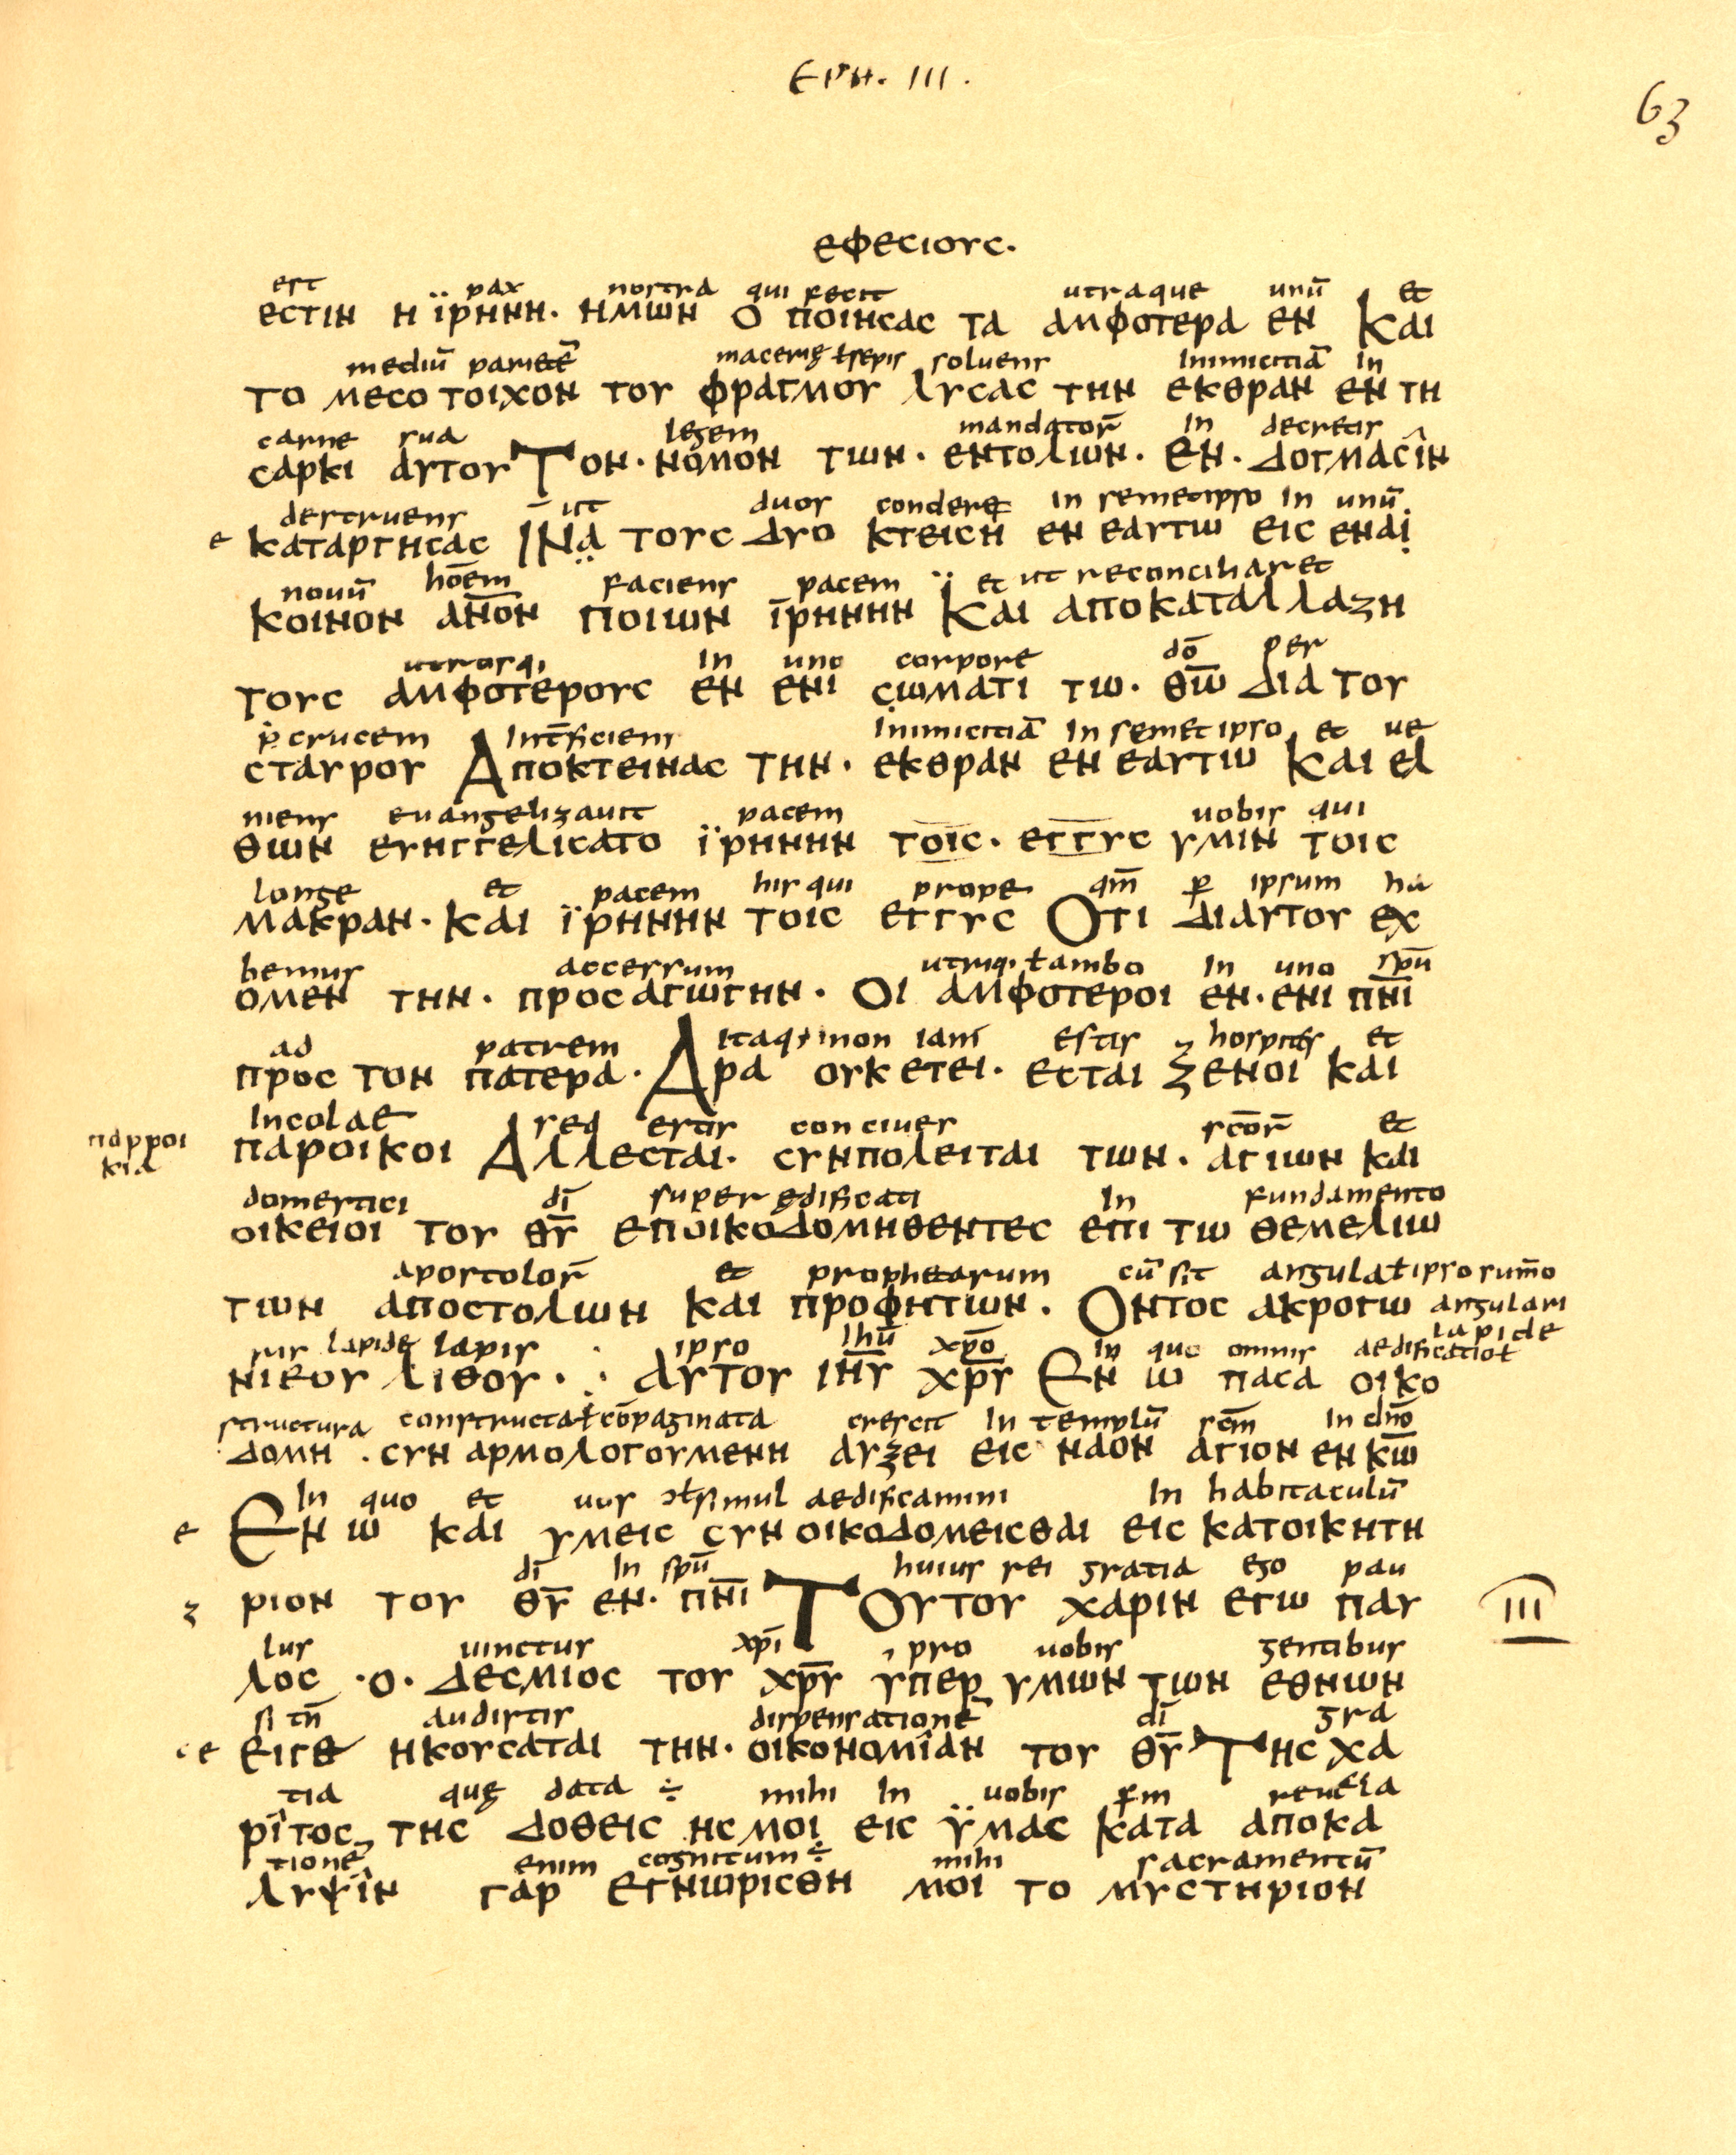 Eph. III.
63
εφεσιους.
est pax nostra qui fecit utraque unū et
εστιν η ϊρηνη· ημων ο ποιησας τα αμφοτερα εν Και
mediū parietē macerię ł sepis soluens inimicitiā in
το μεσο τοιχον του φραγμου λυσας την εκθραν εν τη
carne sua legem mandatoꝝ in decretis
σαρκι αυτου Τον· νομον των· εντολιων· εν· δογμασιν
destruens ut duos conderet in semetipso in unū
ε καταργησας ΙΝα τους δυο κτειση εν εαυτω εις εναι
nouū hōem faciens pacem et ut reconciliaret
κοινον αν̅ον ποιων ϊρηνην Και αποκαταλλαξη
utrosq; in uno corpore dō per
τους αμφοτερους εν ενι σωματι τω· θω̅ δια του
p crucem Interficiens inimicitiā in semetipso et ue
σταυρου Αποκτεινας την· εκθραν εν εαυτω Και ελ
niens euangelizauit pacem uobis qui
θων ευηγγελισατο ϊρηνην τοις· εγγυς υμιν τοις
longe et pacem his qui prope qm̄ ꝑ ipsum ha
μακραν· Και ϊρηνην τοις εγγυς Οτι διαυτου εχ
bemus accessum utriq; ł ambo in uno spū
ομεν την· προσαγωγην· Οι αμφοτεροι εν· ενι πν̅ι
ad patrem itaq; non iam estis hospites et
προς τον πατερα· Αρα ουκ ετει· εσται ξενοι και
incolae sed estis conciues scōꝝ et
παρροι
κια
παροικοι Αλλεσται· συνπολειται των· αγιων και
domestici dī super ędificati in fundamento
οικειοι του θυ̅ εποικοδομηθεντες επι τω θεμελιω
apostoloꝝ et prophetarum cū sit angula ł ipso summo
των αποστολιων και προφητων· Οντος ακρογω angulari
lapide
ris lapide lapis ipso ihū xpō in quo omnis aedificatio ł
νιευου λιθου· : Αυτου ιηυ̅ χρυ̅ Εν ω πασα οικο
structura constructa ł cōpaginata crescit in templū scm̄ in dnō
δομη · συν αρμολογουμενη αυξει εις ναον αγιον εν κω̅
in quo et uos ł simul aedificamini in habitaculū
ε Εν ω και υμεις συν οικοδομεισθαι εις κατοικητη
dī in spū huius rei gratia ego pau
ζ ριον του θυ̅ εν· πν̅ι Τουτου χαριν εγω παυ
III
lus uinctus xpī pro uobis gentibus
λος ·ο· δεσμιος του χρυ̅ υπερ υμων των εθνων
si tn̄ audistis dispensationē dī gra
ε ειγε ηκουσαται την· οικονομιαν του θυ̅ Της χα
tia quę data ÷ mihi in uobis scdm reuela
ριτος της δοθεις ης μοι εις ϋμας κατα αποκα
tionē enim cognitum ÷ mihi sacramentū
λυψιν γαρ εγνωρισθη μοι το μυστηριον